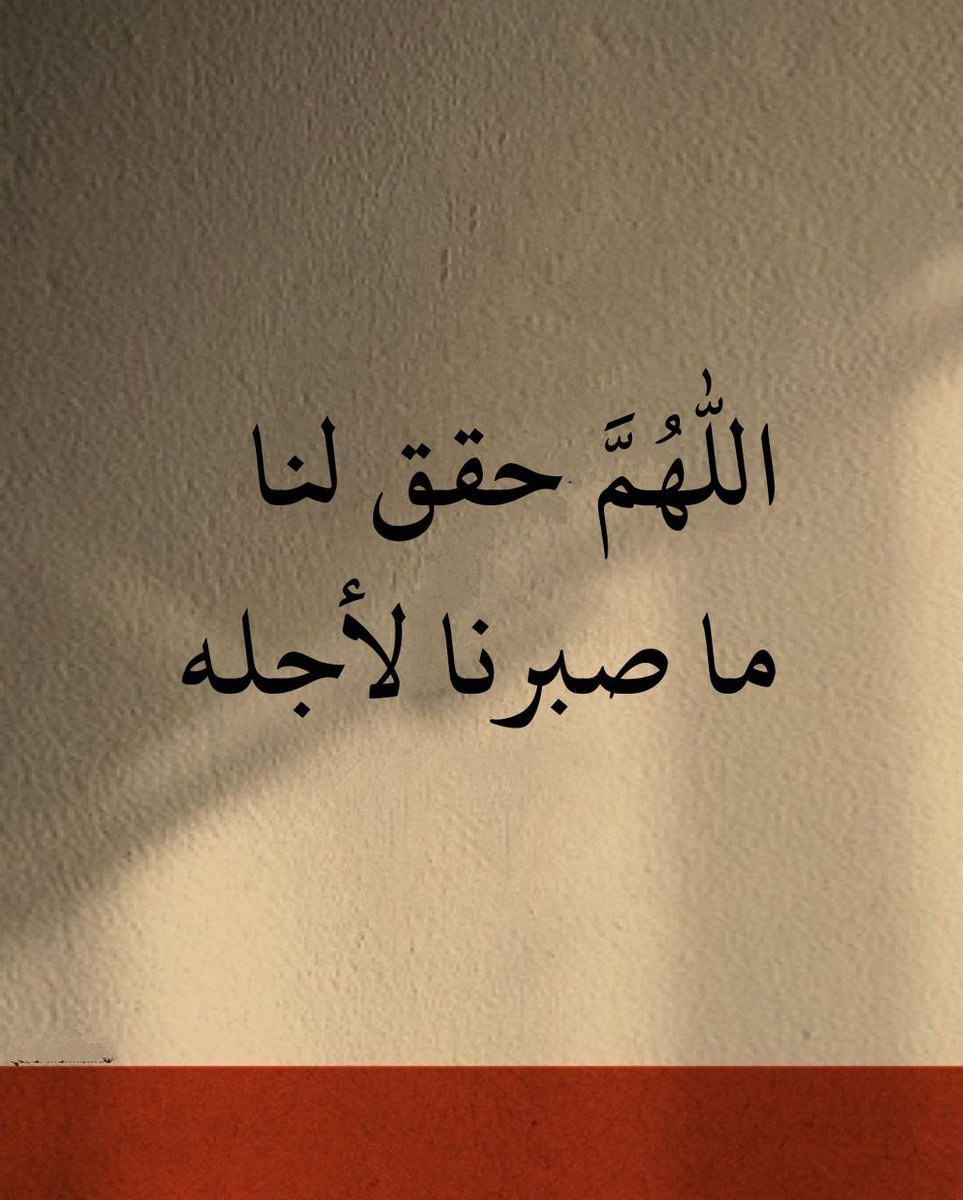 اللّٰهُمَّ حقق لنا
ما صبرنا لأجله